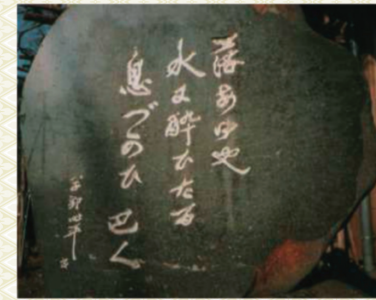 落あゆや
水に酔ひたる
息づかひ 巴人